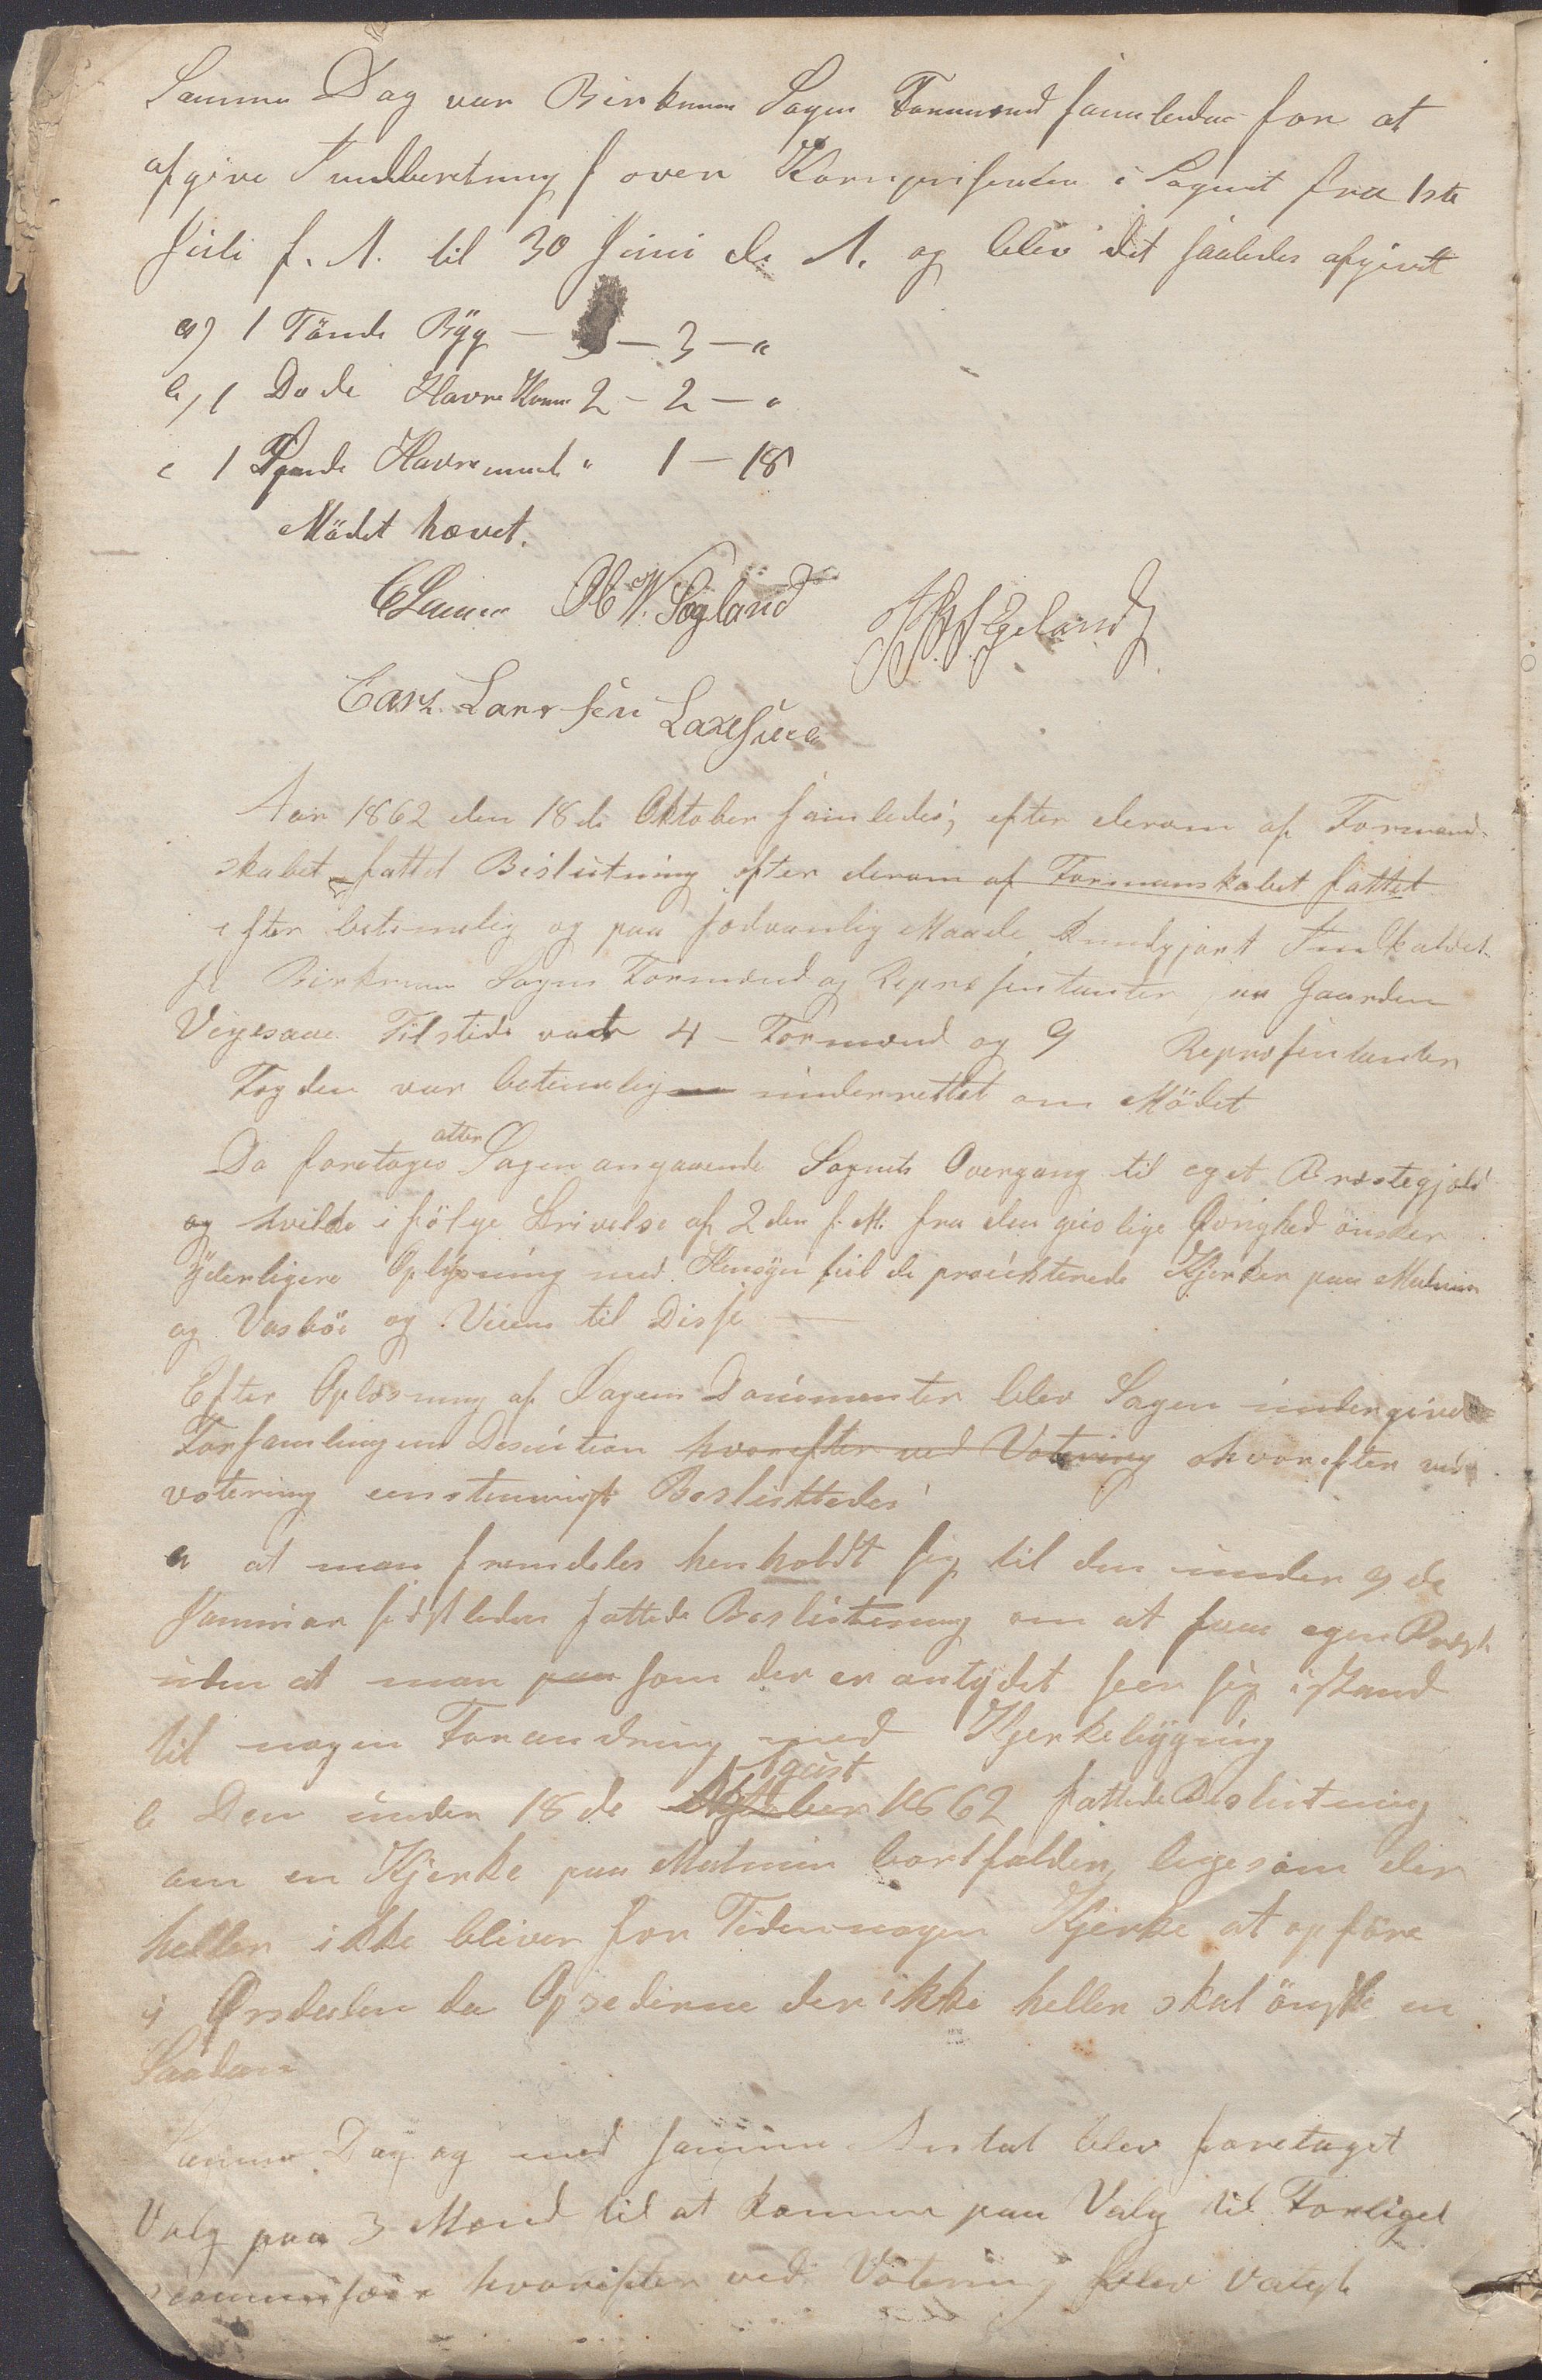 Samme Dag var Birkrem Sogns Formænd samlede for at
afgive Indberetning over Kornpriserne i Sognet fra 1ste
Juli f. A. til 30 Juni d. A. og blev det saaledes afgivet
a) 1 Tönde Byg — 3 — "
b) 1 Do de Havre Korn 2 — 2 — "
c 1 Havremeel " 1 — 18
Mödet hævet.
Sogland Egeland
Lars Larssen Laxesvee
Aar 1862 den 18de Oktober samledes, efter derom af Formand-
skabet fattet Beslutning efter derom af Formanskabet fattet
efter betimelig og paa sedvanlig Maade kundgjort Indkaldel-
se Birkrem Sogns Formænd og Repræsentanter paa Gaarden
Vigesaae Tilstede var 4 Formænd og 9 Repræsentanter
Fogden var betimelig underrettet om Mödet
Da foretoges atter Sagen angaaende Sognets Overgang til eget Præstegjeld
og hvilke ifölge Skrivelse af 2den f. M. fra den geislige Övrighed önsker
yderligere Oplysning med Hensyn til de projekterede Kjerker paa Malmin
og Vasböe og Veiene til Disse —
Efter Oplæsning af Sagens Documenter blev Sagen undergivet
Forsamlingens Descution hvorefter ved Votering ohvorefter ved
votering eenstemmigt Besluttedes
a at man fremdeles henholdt sig til den under 9de
Januar sidstleden fattede Beslutning om at faae egen Præst
uden at man paa som der er antydet seer sig istand
til nogen Forandring med Kjerkebygning
b Den under 18de Agust 1862 fattede Beslutning
om en Kjerke paa Malmin bortfalder, ligesom der
heller ikke bliver for Tiden nogen Kjerke at opföre
i Örsdalen da Opsederne der ikke heller skal önske en
Saadan
Samme Dag og med samme Antal blev foretaget
Valg paa 3 Mænd til at komme paa Valg til Forligel
commissær hvorefter ved Votering blev valgt